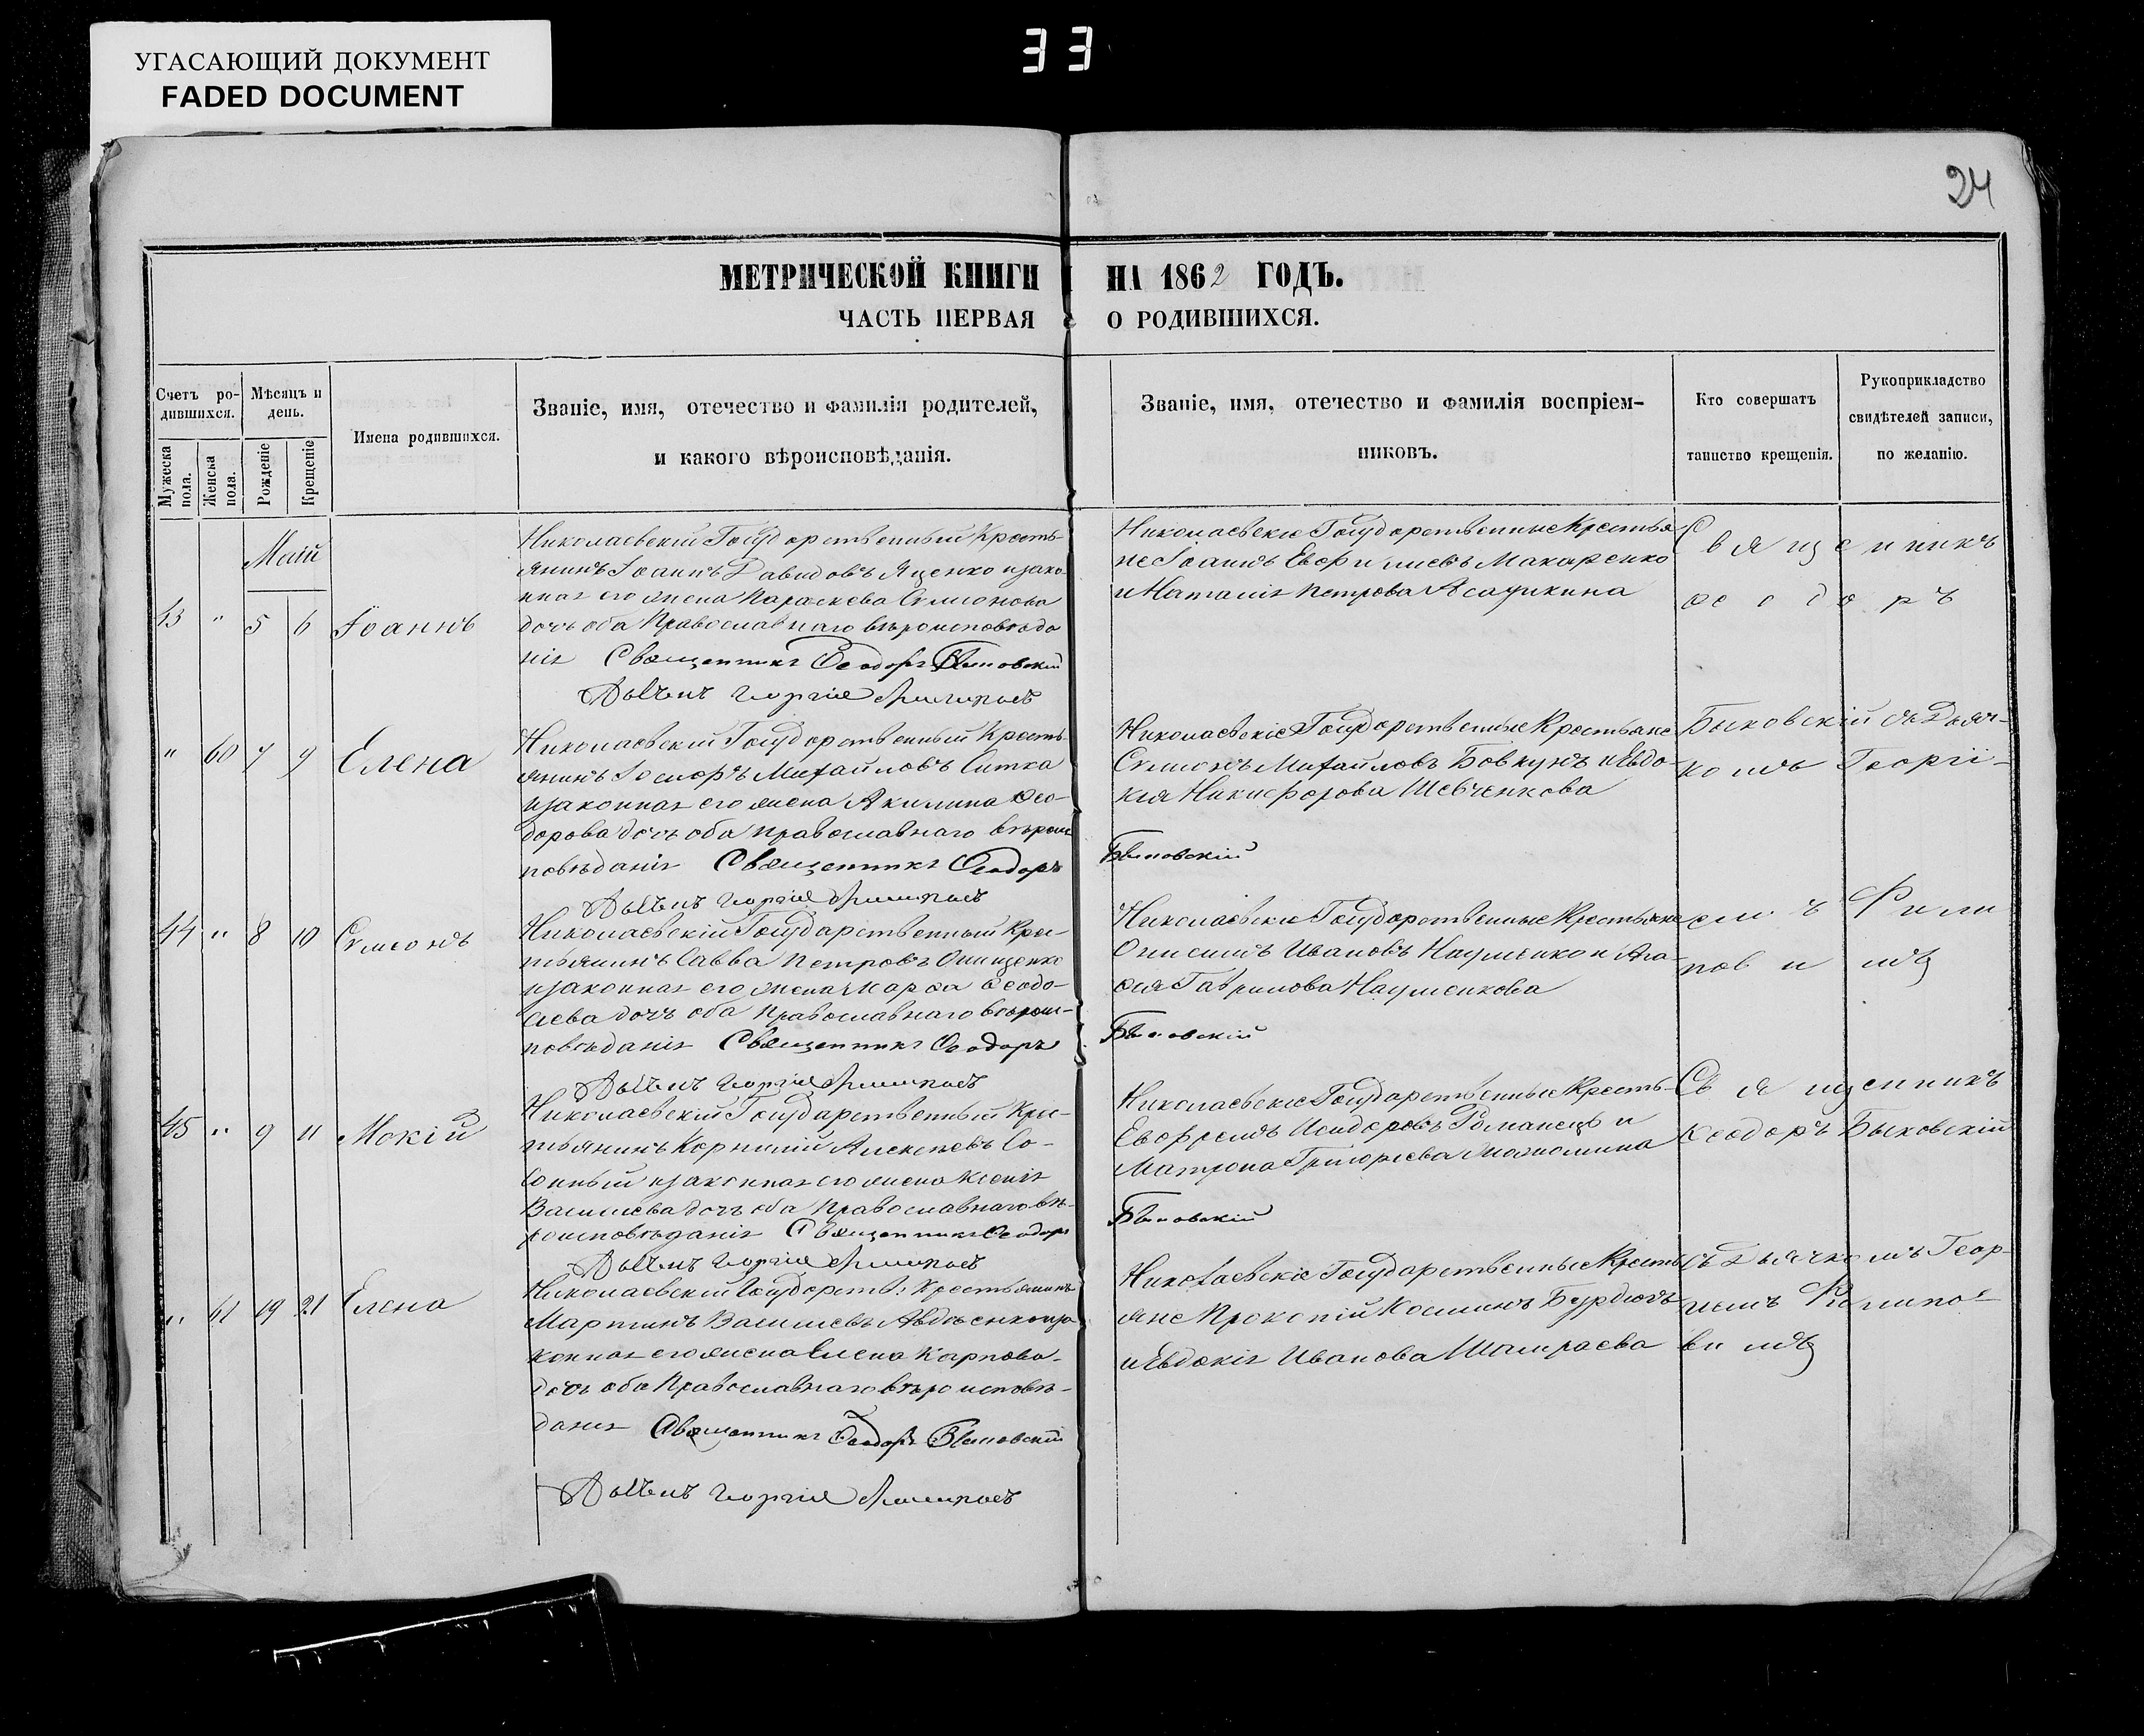 УГАСАЮЩИЙ ДОКУМЕНТ
FADED DOCUMENT
33
24
МЕТРИЧЕСКОЙ КНИГИ НА 1862 ГОДЪ.
ЧАСТЬ ПЕРВАЯ О РОДИВШИХСЯ.
Счетъ ро-
дившихся.
Мужеска пола.
Женска пола.
Мѣсяцъ и
день.
Рожденіе
Крещеніе
Имена родившихся.
Званіе, имя, отечество и фамилія родителей,
и какого вѣроисповѣданія.
Званіе, имя, отечество и фамилія воспріем-
никовъ.
Кто совершатъ
таинство крещенія.
Рукоприкладство
свидѣтелей записи,
по желанію.
Маій
43 " 5 6 Іоаннъ
Николаевскій Государственный Кресть-
янинъ Іоаннъ Давидовъ Яценко и зако-
нная его жена Параскева Симеонова
дочь оба Православнаго вѣроисповѣда
нія Священникъ Ѳеодоръ Быковскій
Дьячекъ Георгій Филиповъ
Николаевскіе Государственные Крестья
не Іоаннъ Евфимиевъ Макаренко
и Наталія Петрова
Священникъ
Ѳеодоръ
" 60 7 9 Елена
Николаевскій Государственный Кресть-
янинъ Іосифъ Михайловъ Ситка
и законная его жена Акилина Ѳео-
дорова дочь оба православнаго вѣроис
повѣданія Священникъ Ѳеодоръ
Быковскій
Дьячекъ Георгій Филиповъ
Николаевскіе Государственные Крестьяне
Симеонъ Михайловъ Бовкунъ и Евдо-
кія Никифорова Шевченкова
Быковскій съ Дьяч-
комъ Георгі-
44 " 8 10 Симеонъ
Николаевскій Государственный Крес-
тьянинъ Савва Петровъ Онищенко
и законная его жена Марѳа Ѳеодо-
сиева дочь оба Православнаго вѣроис-
повѣданія Священникъ Ѳеодоръ
Быковскій
Дьячекъ Георгій Филиповъ
Николаевскіе Государственные Крестьяне
Онисимъ Ивановъ Науменко и Ага-
ѳія Гаврилова Науменкова
емъ Фили
повимъ
45 " 9 11 Мокій
Николаевскій Государственный Крес-
тьянинъ Корнилій Алексѣевъ Со-
и законная его жена Ксенія
Василиева дочь оба Православнаго вѣ-
роисповѣданія Священникъ Ѳеодоръ
Быковскій
Дьячекъ Георгій Филиповъ
Николаевскіе Государственные Кресть-
Исидоровъ Романецъ и
Матрона Григориева
Священникъ
Ѳеодоръ Быковскій
" 61 19 21 Елена
Николаевскій Государств: Крестьянинъ
Мартинъ Василиевъ Авдѣенко и за-
конная его жена Елена Карпова-
дочь оба Православнаго вѣроисповѣ-
данія Священникъ Ѳеодоръ Быковскій
Дьячекъ Георгій Филиповъ
Николаевскіе Государственные Кресть
яне Прокопій Косминъ
и Евдокія Иванова Шамраева
съ Дьячкомъ Геор-
гиемъ Филипо-
вимъ